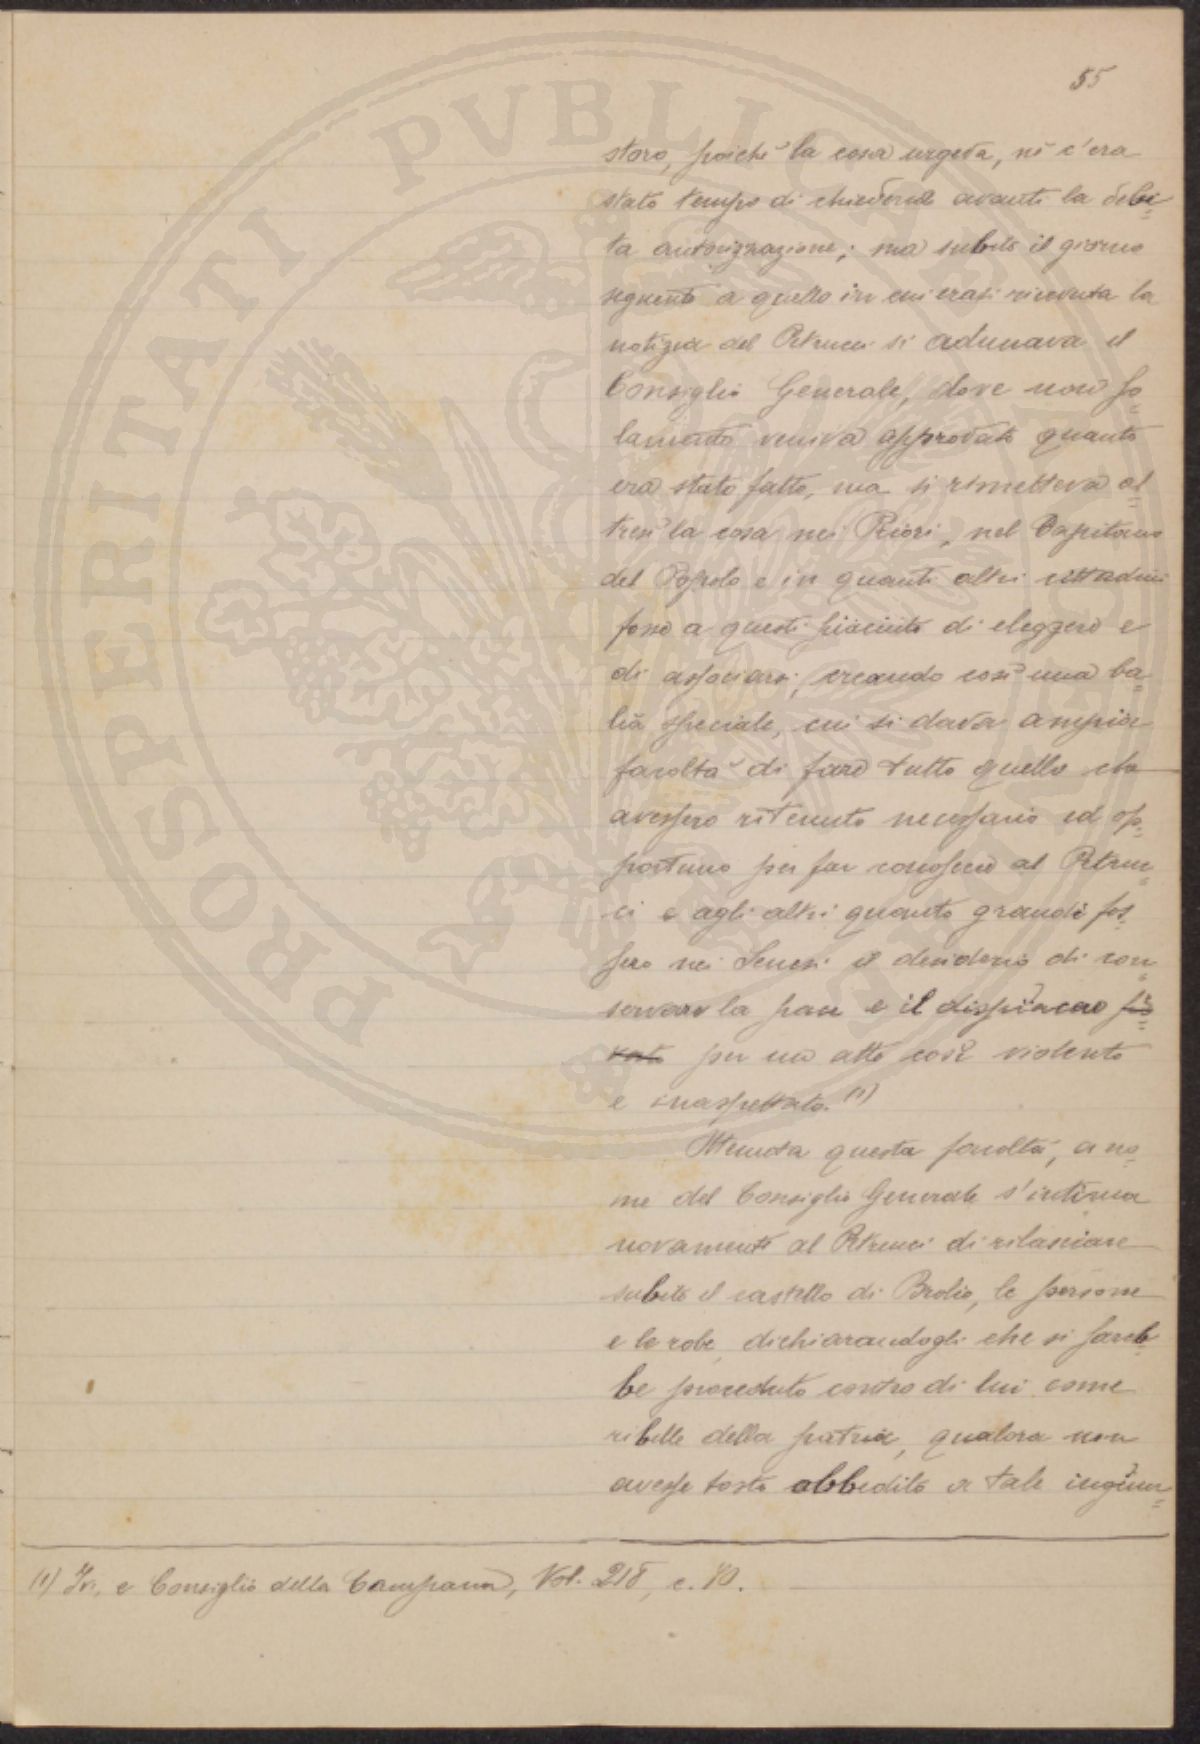 55
storo, poiché la cosa urgeva, né c'era
stato tempo di chiederne avanti la debi=
ta autorizzazione; ma subito il giorno
seguente a quello in cui erasi ricevuta la
notizia del Petrucci si adunava il
Consiglio Generale, dove non so=
lamente veniva approvato quanto
era stato fatto, ma si rimetteva al=
tresì la cosa nei Priori, nel Capitano
del Popolo e in quanti altri cittadini
fosse a questi piaciuto di eleggere e
di associarsi, creando così una ba=
lìa speciale, cui si dava ampia
facoltà di fare tutto quello che
avessero ritenuto necessario ed op=
portuno per far conoscere al Petruc=
ci e agli altri quanto grandi fos=
sero nei Senesi il desiderio di con=
servare la pace e il dispiacere
per un atto così violento
e inaspettato. (1)
Ottenuta questa facoltà, a no=
me del Consiglio Generale s'intima
novamente al Petrucci di rilasciare
subito il castello di Brolio, le persone
e le robe, dichiarandogli che si sareb=
be proceduto contro di lui come
ribelle della patria, qualora non
avesse tosto obbedito a tale ingiun=
(1) Ivi, e Consiglio della Campana, Vol. 218, c. 40.
PVBLICAE PROSPERITATI